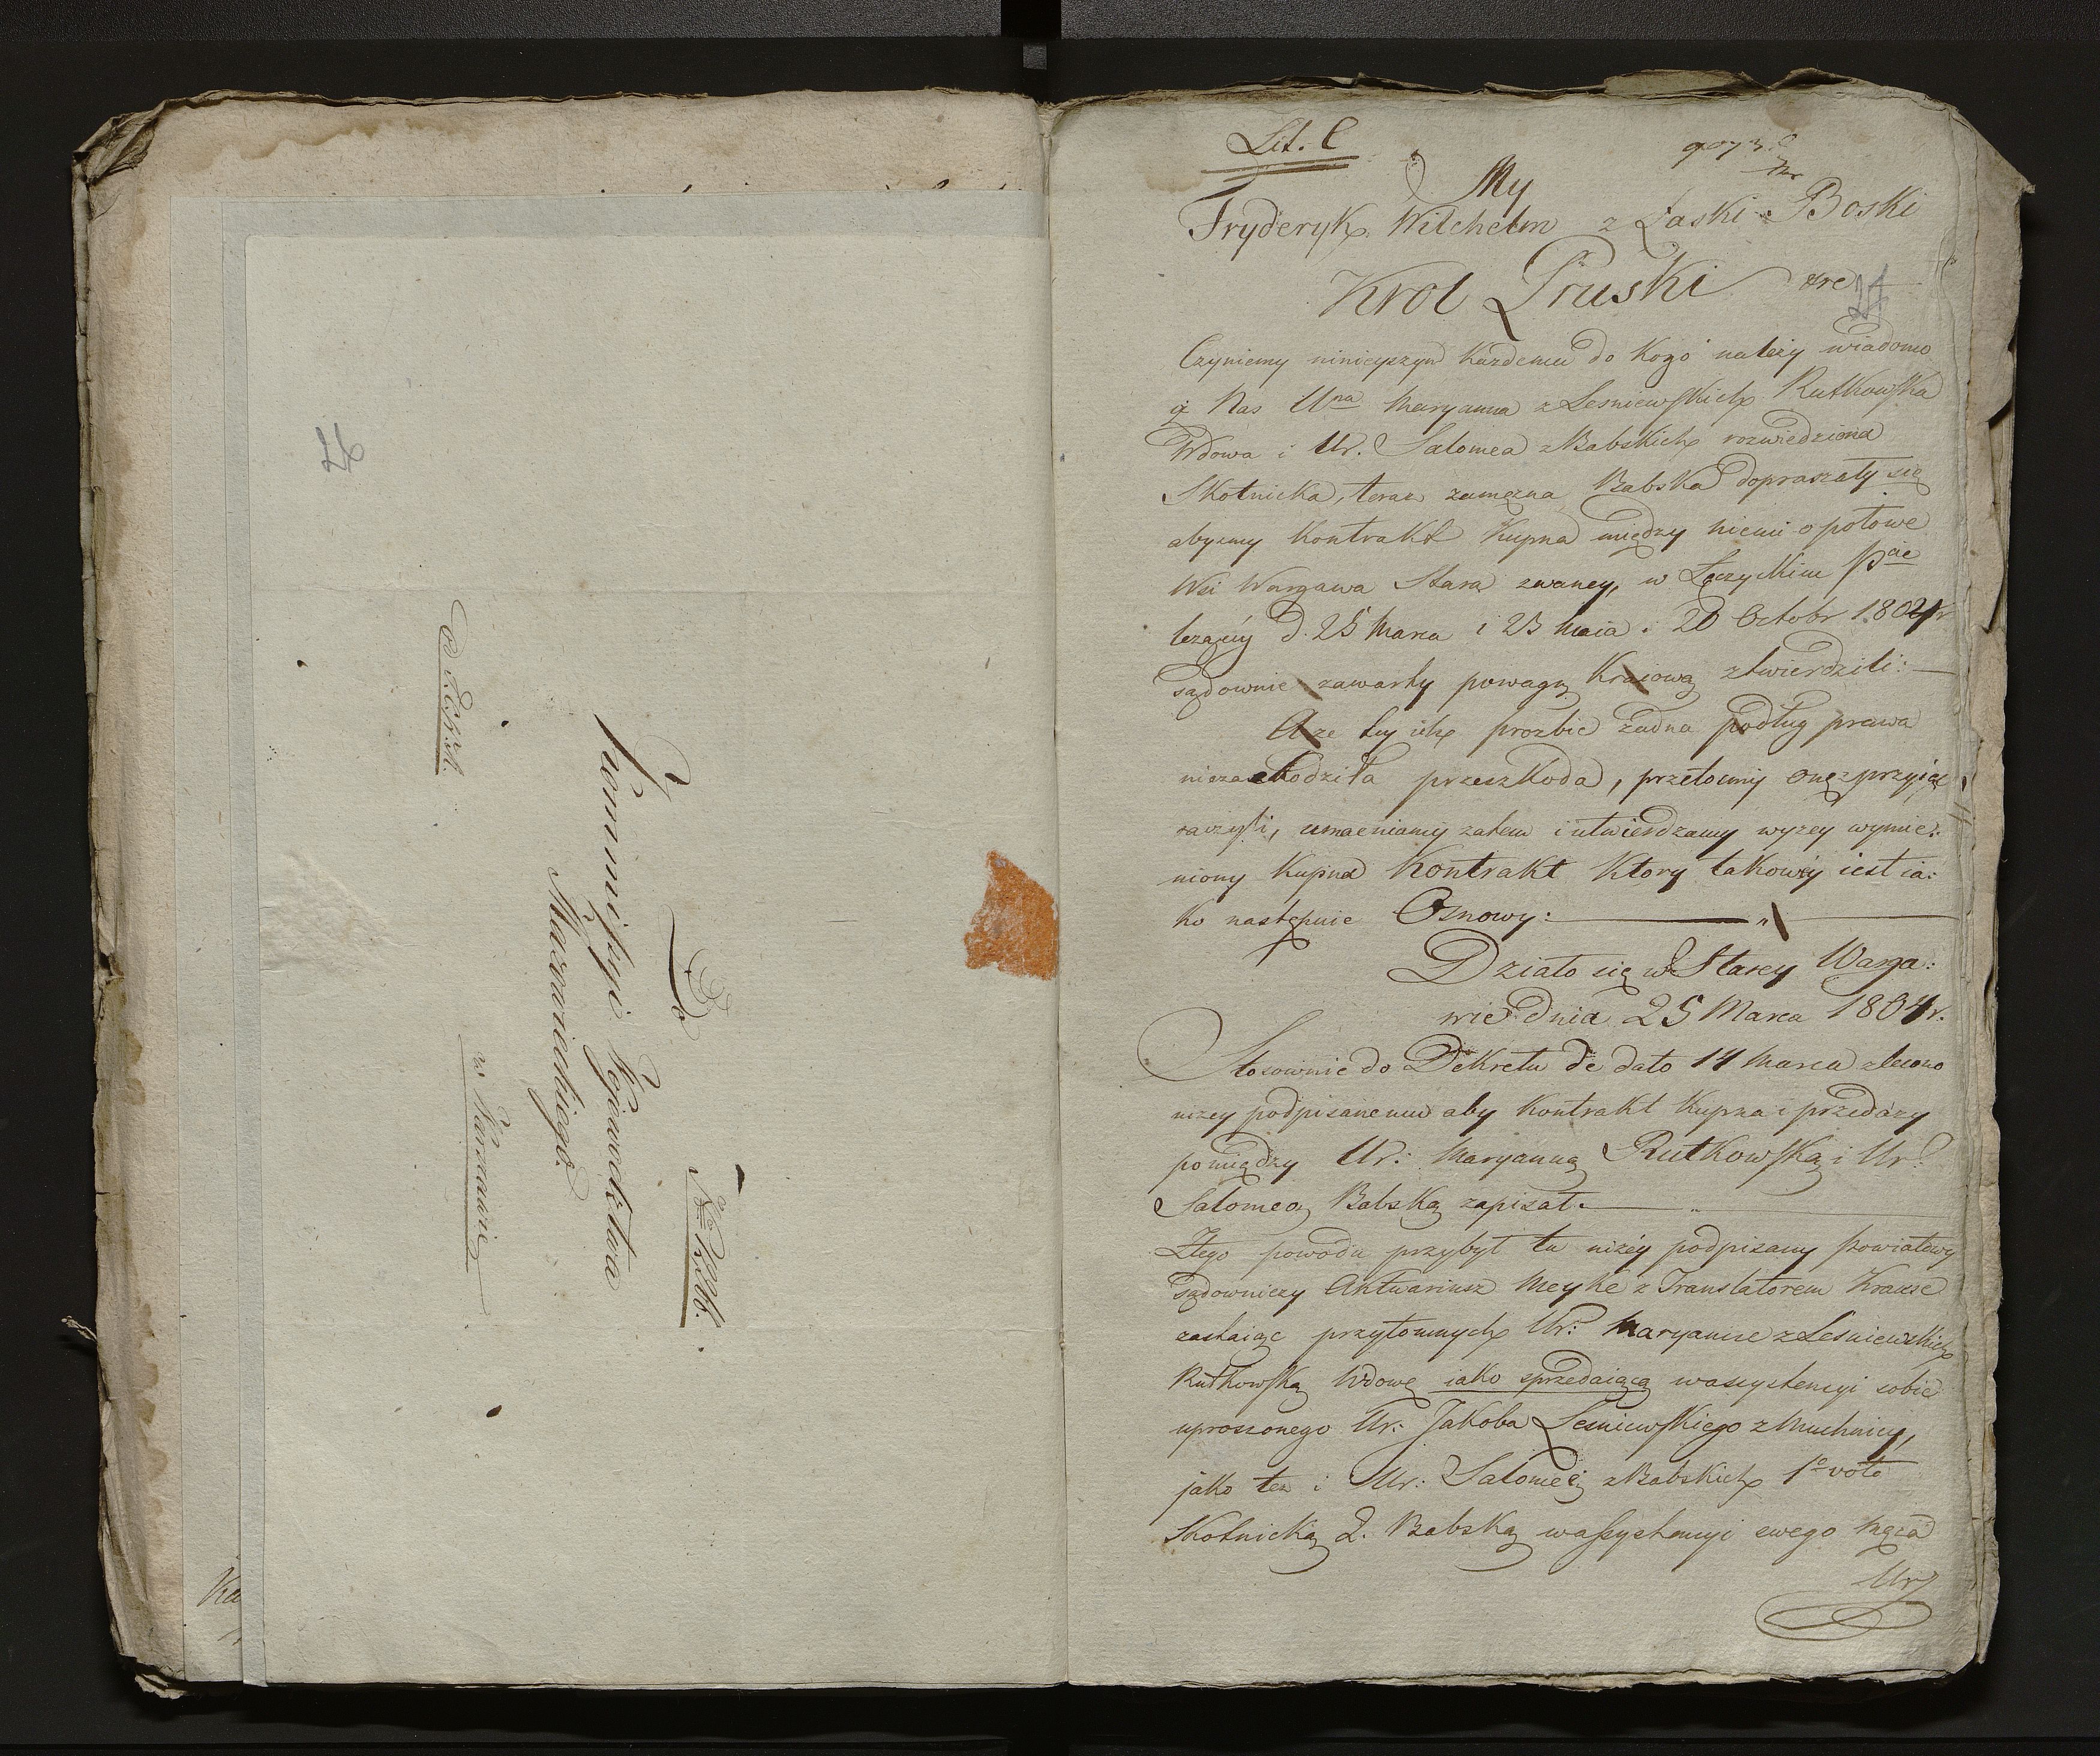 Do
Kommissyi Wojewodztwa
Mazowieckiego
w Warszawie
Lit. C
My
Fryderyk Wilchelm z Łaski Boski
Krol Pruski etc
24
Czyniemy ninieyszym każdemu do kogo należy wiadomo
iż Nas Ur̃na Maryanna z Lesniewskich Rutkowska
Wdowa i Ur. Salomea z Babskich rozwiedziona
Skotnicka, teraz zamężna Babska dopraszały się
abysmy Kontrakt Kupna między niemi o połowe
Wsi Wargawa Stara zwaney, w Łęczyckim Pcie
leżący d. 25 Marca i 23 Maia i 20 Octobr 1804 r
sądownie zawarty powagą Kraiową ztwierdzili:
A że tey ich prozbie żadna podług prawa
niezachodziła przeszkoda, przetosmy onę przyiąć
raczyli, umacniamy zatem i utwierdzamy wyzey wymie:
niony Kupna Kontrakt Ktory takowey iest ia:
ko następuie Osnowy:
Działo się w Starey Warga:
wie dnia 25 Marca 1804 r.
Stosownie do Dekretu de dato 14 Marca zlecono
niżey podpisanemu aby Kontrakt Kupna i przedaży
pomiędzy Ur: Maryanną Rutkowską i Ur:
Salomeą Babską zapisał.
Z tego powodu przybył tu niżey podpisany powiatowy
sądowniczy Aktuariusz Meyke z Translatorem Krause
zastaiąc przytomnych Ur: Maryannę z Lesniewskich
Rutkowską Wdowę iako sprzedaiącą w assystencyi sobie
uproszonego Ur: Jakoba Lesniewskiego z Muchnicy,
jako też i Ur: Salomeę z Babskich 1o voto
Skotnicką 2. Babską w assystencyi swego męża
Ur